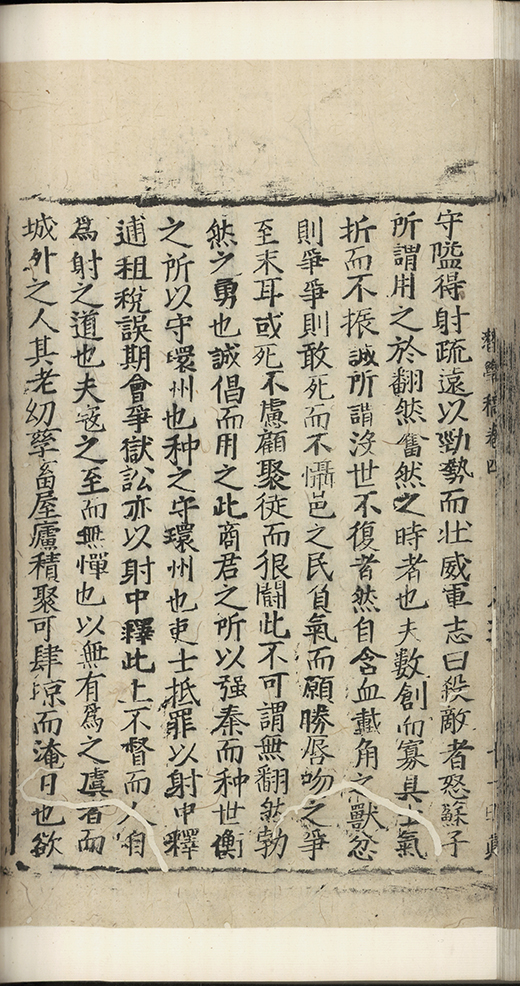 守隘得射疏遠以勁勢而壯威軍志曰殺敵者怒蘇子
所謂用之於翻然奮然之時者也夫數創而寡具士氣
折而不振誠所謂沒世不復者然自含血戴角之獸忿
則爭爭則敢死而不懾邑之民負氣而願勝唇吻之爭
至末耳或死不慮顧聚徒而很鬪此不可謂無翻然勃
然之勇也誠倡而用之此商君之所以强秦而种世衡
之所以守環州也种之守環州也吏士抵罪以射中釋
逋租稅誤期會爭獄訟亦以射中釋此上不督而人自
爲射之道也夫寇之至而無憚也以無有爲之虞者而
城外之人其老幼孳畜屋廬積聚可肆掠而淹日也欲